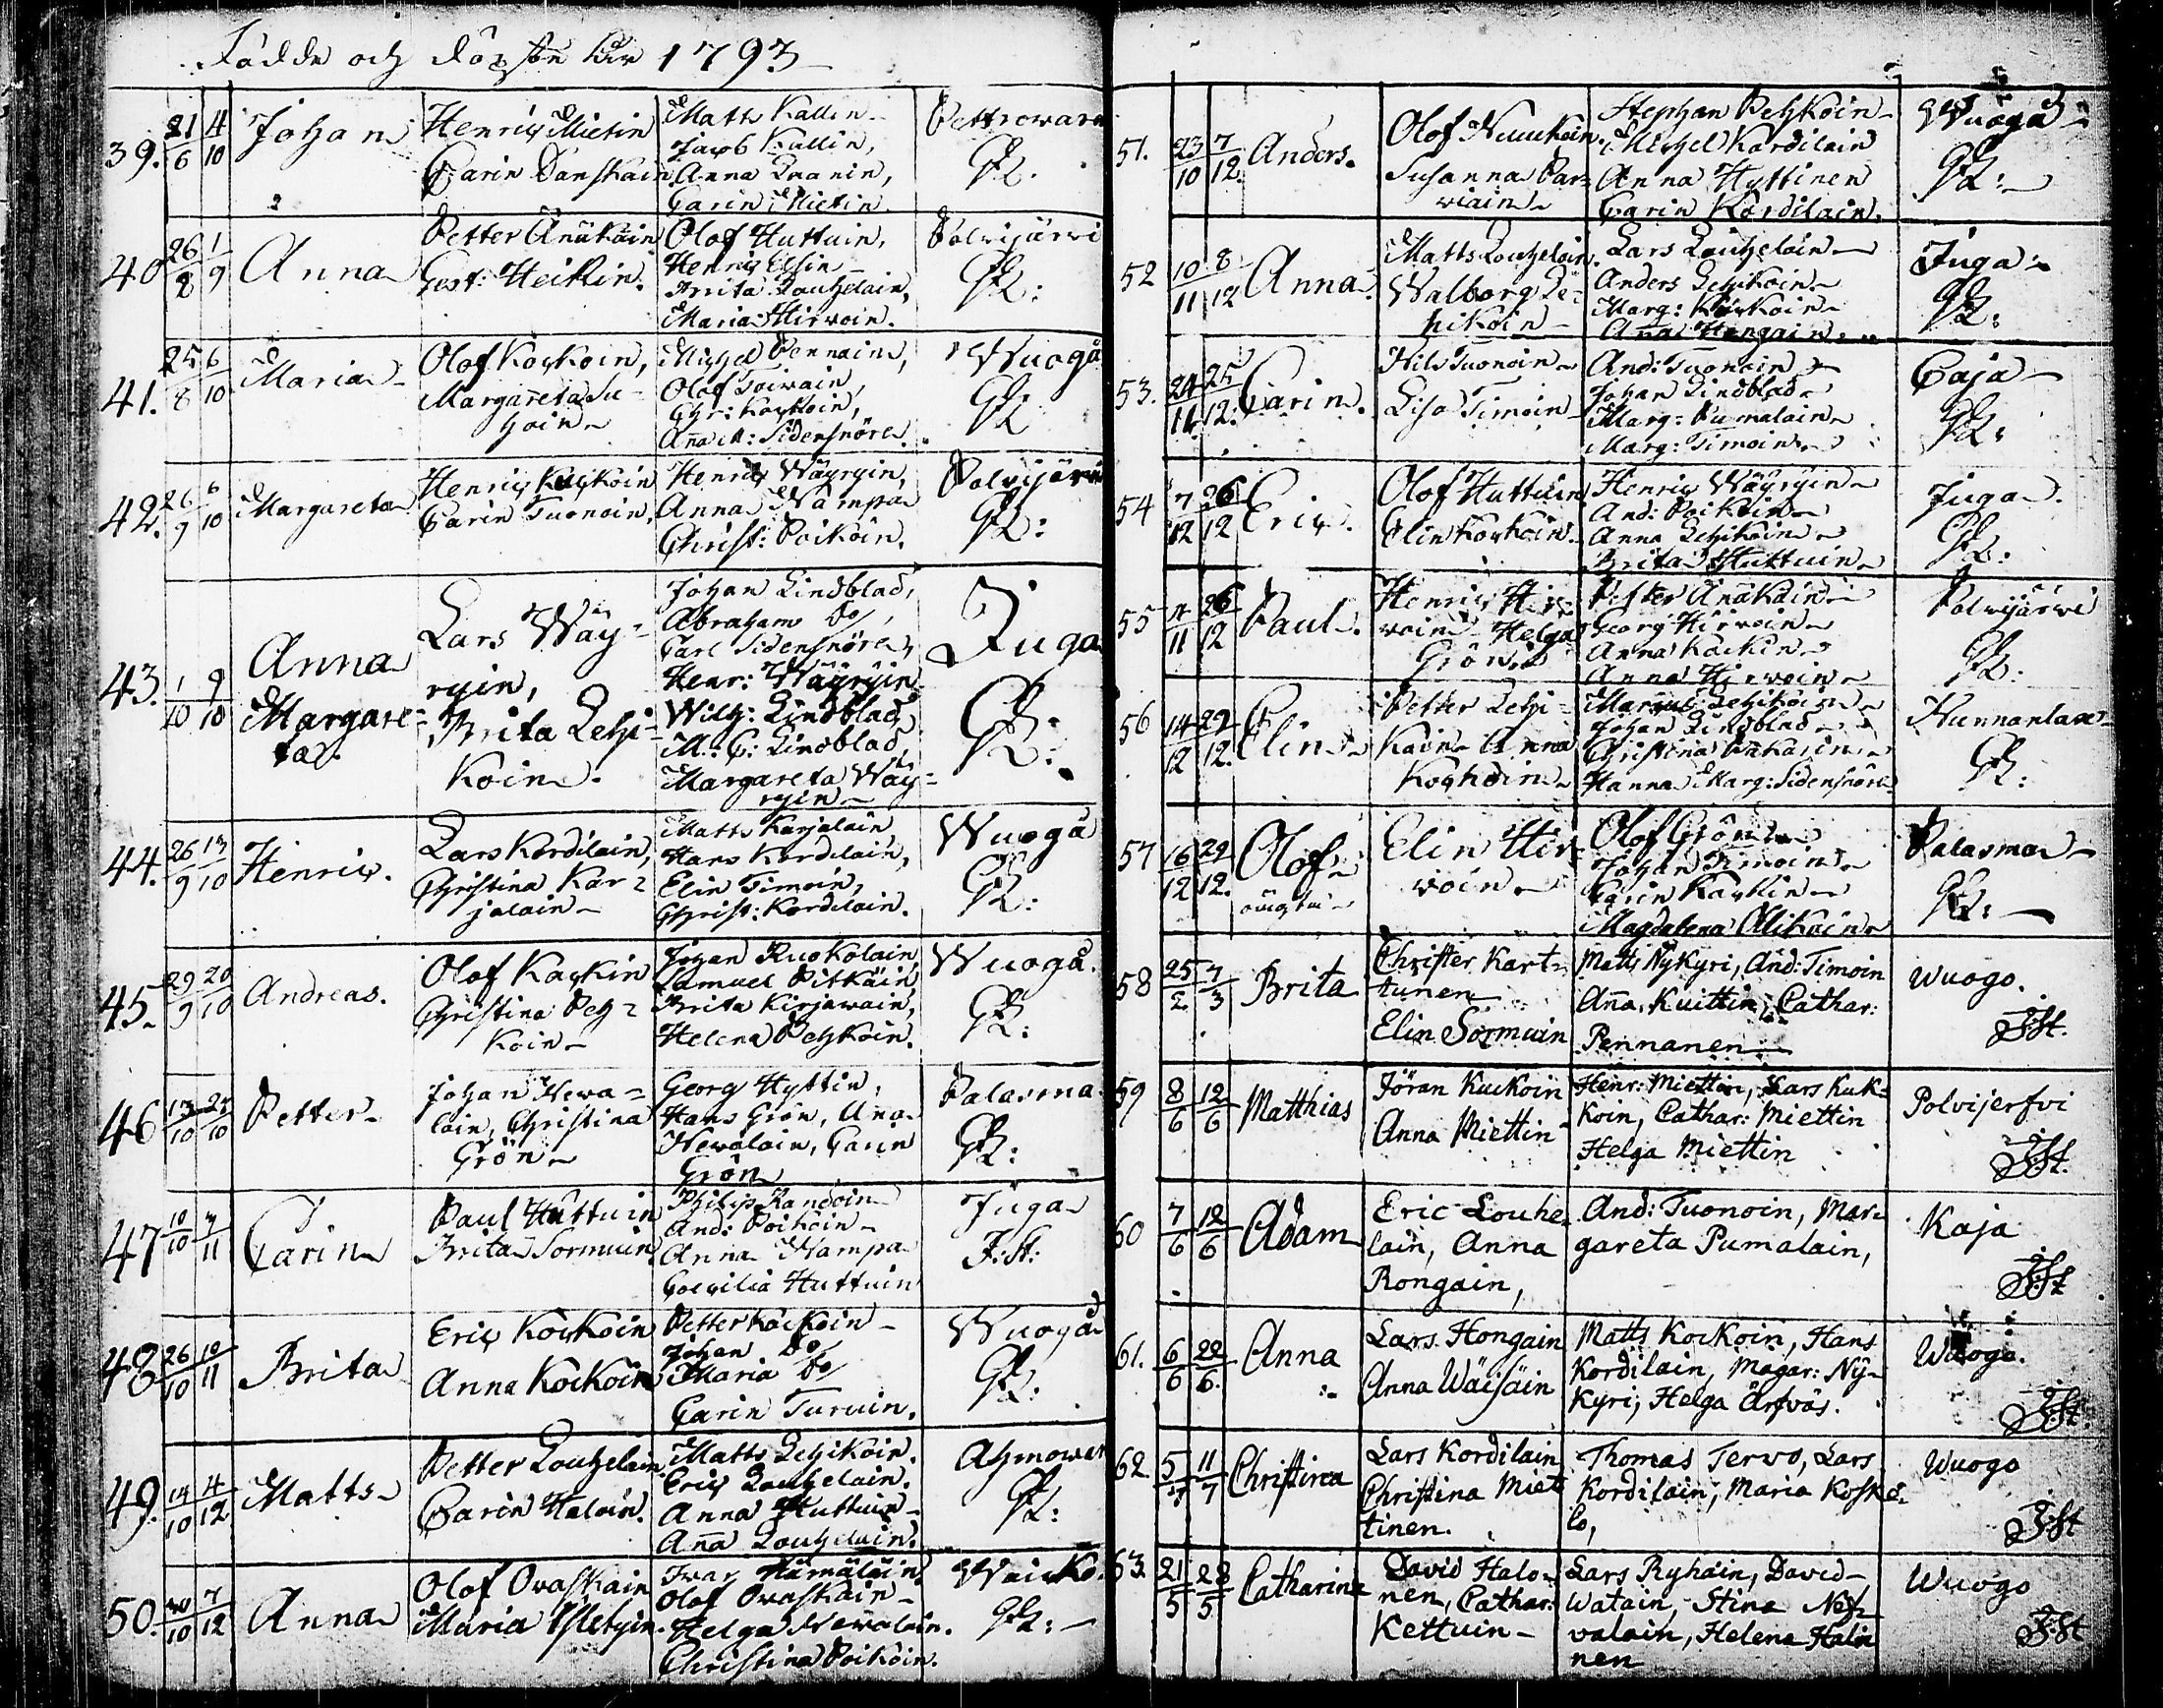 Födde och döpte år 1793
39. 21/6 4/10 Johan
Henric Mietin
Carin Danskain
Matts Kallin
Jacob Kallin,
Anna
Carin Mietin
Pettrowara
40 26/8 1/9 Anna
Petter Änäkäin
Gest: Heikin.
Olof Huttuin,
Henric
Brita Louhelain,
Maria Hirwoin.
Polvijärwi
41. 25/8 6/10 Maria
Olof Kockoin,
Margareta Su-
hoin
Michel Pennain,
Olof Toiwain,
Chr: Kockoin,
Aña M: Sidensnöre
Wuogå
42. 26/9 6/10 Margareta
Henric Kockoin
Carin Tuonoin,
Henric Wäyryin,
Anna Wampa
Christ: Poikoin.
Polvijärwi
43. 1/10 9/10 Anna
Margare-
ta.
Lars Wäy-
ryin,
Brita Lehi-
koin.
Johan Lindblad,
Abraham Do,
Carl Sidensnöre,
Henr: Wäyryin
Wilh: Lindblad,
M: C: Lindblad,
Margareta Wäy-
ryin
Juga
44. 26/9 13/10 Henric.
Lars Kordilain,
Christina Kar-
jalain
Matts Karjalain
Hans Kordilain,
Elin Timoin,
Christ: Kordilain.
Wuogå
45. 29/9 20/10 Andreas.
Olof Kackin
Christina Peh-
koin
Johan Ruokolain
Samuel Pitkäin,
Brita Kirjawain,
Helena Pehkoin.
Wuogå.
46 Petter
Johan Newa-
lain, Christina
Grön
Georg Hyttin,
Hans Grön, Ana
Newalain, Carin
Grön
Palasma
47 10/10 7/11 Carin
Paul Huttuin
Brita Sormuin
Philip Randoin
And: Poikoin
Anna Wampa
Coecilia Huttuin
Juga
F: St:
48 26/10 10/11 Brita
Eric Kockoin
Anna Kockoin
Petter Kockoin
Johan Do
Maria Do
Carin Turuin.
Wuogå
49. 14/10 4/12 Matts
Petter Louhelain
Carin Haloin.
Matts Lehikoin.
Eric Louhelain.
Anna Huttuin
Aña Louhelain.
Ahmowar
50. 7/12 Anna
Olof Ovaskain
Maria
Ivar Hämäläin
Olof Ovaskain
Helga Newalain.
Christina Poikoin.
51. 23/10 7/12 Anders.
Olof Nuukoin.
Susanna Par-
wiain
Stephan Pehkoin
Michel Kordilain
Anna Hyttinen
Carin Kordilain.
Wuogå
52 10/11 8/12 Anna.
Matts Louhelain
Walborg Le-
hikoin
Lars Louhelain
Anders Lehikoin
Marg: Kockoin
Aña Hongain
Juga
53. 24/11 25/12 Carin.
Nils Tuonoin
Lisa Timoin
And: Tuonoin
Johan Lindblad
Marg: Pumalain
Marg: Timoin
Caja
54 7/12 26/12 Eric.
Olof Huttuin
Elin Kockoin.
Henric Wäyryin
And: Poikoin
Anna Lehikoin
Brita Huttuin
Juga.
55 26/12 Paul.
Henric Hir-
woin Helga
Grön
Petter Änäkäin
Georg Hirwoin
Anna Kackin
Anna Hirwoin
Polvijärwi
56 14/12 29/12 Elin
Petter Lehi-
koin Anna
Kockoin
Marcus Lehikoin
Johan Lindblad
Christina
Hanna Marg: Sidensnöre
Kunnanlax
57 16/12 29/12 Olof
oäugta
Elin Hir-
voin
Olof Grön
Johan Timoin
Carin Kackin
Magdalena Olikain
Palasma
58 25/2 7/3 Brita
Christer Kart-
tunen
Elin Sormuin
Matts Nykyri, And: Timoin
Aña Kuittin, Cathar:
Pennanen
Wuogo.
F:St.
59 8/6 12/6 Matthias
Jöran Kuckoin
Anna Miettin
Henr: Miettin, Lars Kuk-
koin, Cathar: Miettin
Helga Miettin
Polvijerfvi
F:St.
60 7/6 12/6 Adam
Eric Louhe-
lain, Anna
Rongain,
And: Tuonoin, Mar-
gareta Pumalain,
Kaja
F:St
61. 6/6 22/6 Anna
Lars Hongain
Anna Wäisäin
Matts Kockoin, Hans
Kordilain, Magar: Ny-
kyri, Helga Ärfväs.
Wuogo.
F:St.
62. 5/7 11/7 Christina
Lars Kordilain
Christina Miet-
tinen.
Thomas Tervo, Lars
Kordilain, Maria Koske-
lo,
Wuogo
F:St
63. 21/5 28/5 Catharina
David Halo-
nen, Cathar:
Kettuin
Lars Ryhäin, David
Watain, Stina Nef-
valain, Helena Halo
nen
Wuogo
F:St